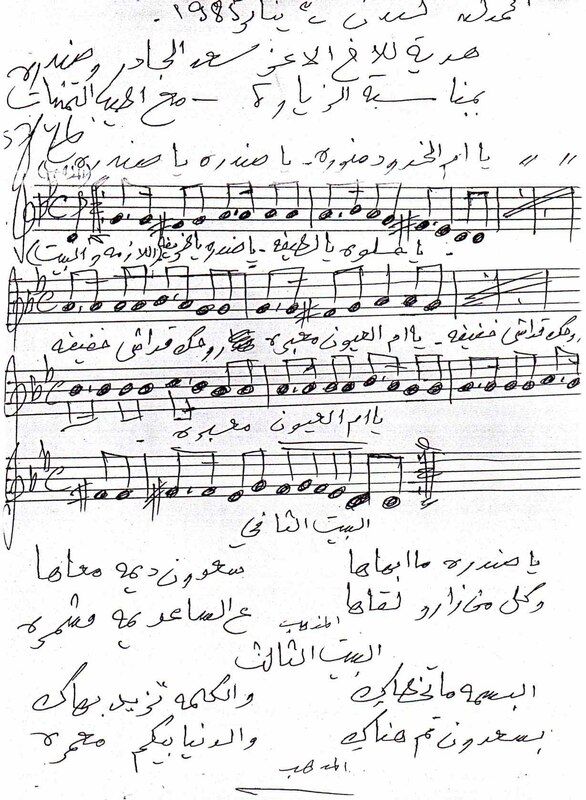 لندن يناير 1985.
هدية للاخ الاعز سعد الجادر وصندره
بمناسبة الزيارة - مع اطيب التمنيات
يا ام الخدود منوره - يا صندره يا صندره " "
يا حلوه يا لطيفه - يا صندره (اللازمه والبيت)
روحك قداشي خفيفه - يا ام العيون معبره روحك قداشي خفيفه
يا ام العيون معبره
البيت الثاني
يا صندره ما ابهاها سعدون ديمه معاها
وكل من زارو لقاها ع الساعديمه مشمره
المذهب
البيت الثالث
البسمه ما تخطاكِ والكلمه تزيد بهاكِ
بسعدون تم هناكِ والدنيا بيكم معمره
المذهب